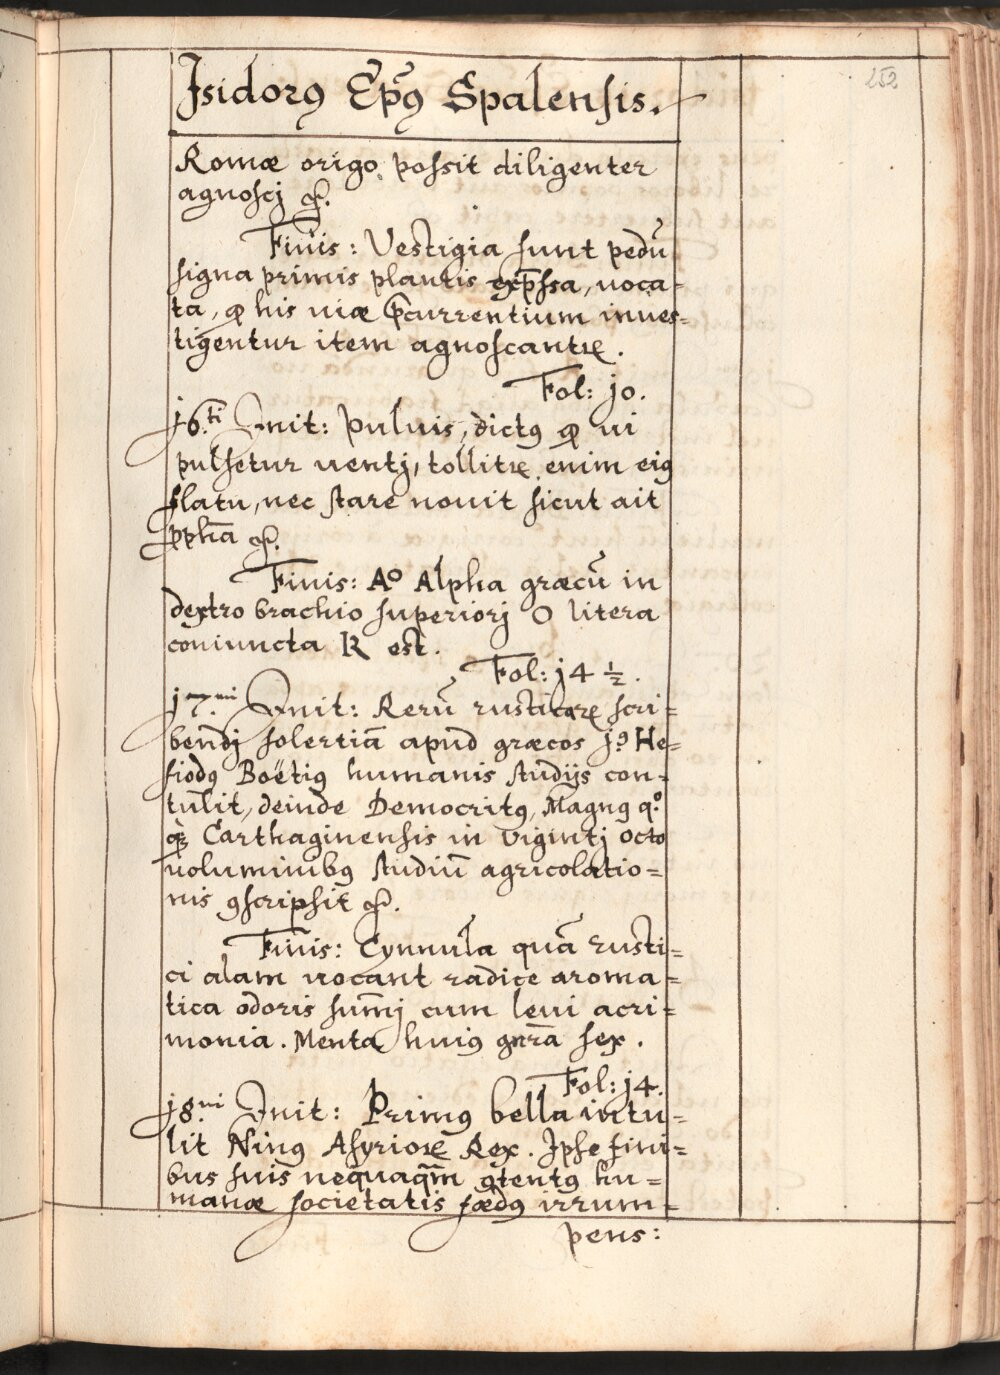 252
Isidorꝰ Ep̃ꝰ Spalensis.
Romæ origo possit diligenter
agnoscj &.
Finis: Vestigia sunt pedũ
signa primis plantis exp̃ssa, uoca=
ta, ꝙ his uiæ p̃currentium inues=
tigentur item agnoscantꝛ.
Fol: jo.
j6.ti Init: puluis, dictꝰ ꝙ ui
pulsetur uentj, tollitꝛ enim eiꝰ
flatu, nec stare nouit sicut ait
ꝓpħa &.
Finis: Aº Alpha græcũ in
dextro brachio superiorj O litera
coniuncta R est.
Fol: j4 ½.
j7.mi Init: Rerũ rusticaꝝ scri=
bendj solertiã apud græcos jº He=
siodꝰ Boëtiꝰ humanis studijs con=
tulit, deinde Democritꝰ, Magnꝰ qº
qꝫ Carthaginensis in vigintj octo
uoluminibꝰ studiũ agricolatio=
nis ꝯscripsit &.
Finis: Cynnula quã rusti=
ci alam uocant radice aroma=
tica odoris sum̃j cum leui acri=
monia. Menta huiꝰ gnrã sex.
Fol: j4.
j8.mi Init: Primꝰ bella intu=
lit Ninꝰ Asyrioꝝ Rex. Ipse fini=
bus suis nequaq̃m ꝯtentꝰ hu=
manæ societatis fœdꝰ irrum=
pens: